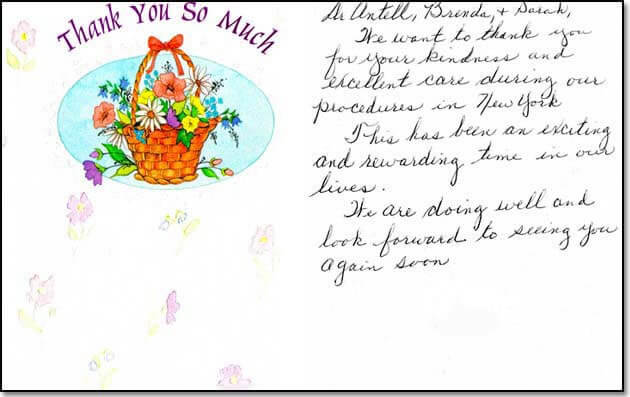 Thank You So Much
Dr Antell, Brenda, + Sarah,
We want to thank you
for your kindness and
excellent care during our
procedures in New York
This has been an exciting
and rewarding time in our
lives.
We are doing well and
look forward to seeing you
again soon